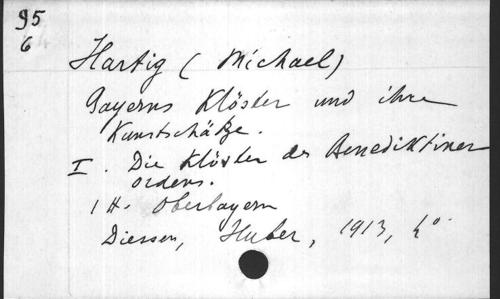 95
6
Hartig (Michael)
Bayerns Klöster und ihre
Kunstschätze.
I. Die Klöster des Benediktiner
ordens.
1 H. Oberbayern
Diessen, Huber, 1913, 4°.